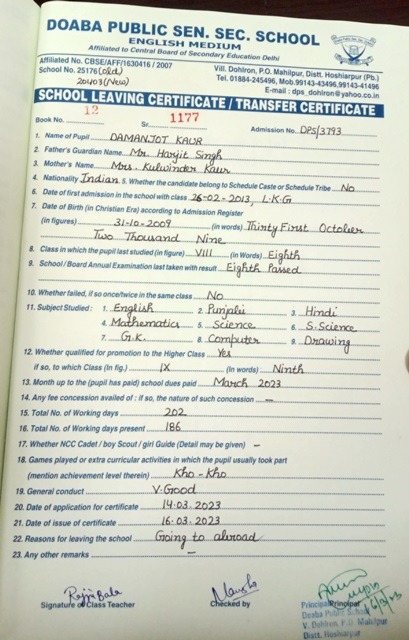 DOABA PUBLIC SEN. SEC. SCHOOL
ENGLISH MEDIUM
Affiliated to Central Board of Secondary Education Delhi
Affiliated No. CBSE/AFF/1630416 / 2007
School No. 25176 (old)
20403 (New)
Vill. Dohlron, P.O. Mahilpur, Distt. Hoshiarpur (Pb.)
Tel. 01884-245496, Mob.99143-43996,99143-41496
E-mail : dps_dohlron@yahoo.co.in
SCHOOL LEAVING CERTIFICATE / TRANSFER CERTIFICATE
Book No. 12 Sr. 1177 Admission No. DPS/3793
1. Name of Pupil DAMANJOT KAUR
2. Father's Guardian Name Mr. Harjit Singh
3. Mother's Name Mrs. Kulwinder Kaur
4. Nationality Indian 5. Whether the candidate belong to Schedule Caste or Schedule Tribe No
6. Date of first admission in the school with class 26-02-2013, L.K.G
7. Date of Birth (in Christian Era) according to Admission Register
(in figures) 31-10-2009 (in words) Thirty First October
Two Thousand Nine
8. Class in which the pupil last studied (in figure) VIII (in Words) Eighth
9. School / Board Annual Examination last taken with result Eighth Passed
10. Whether failed, if so once/twice in the same class No
11. Subject Studied : 1. English 2. Punjabi 3. Hindi
4. Mathematics 5. Science 6. S.Science
7. G.K. 8. Computer 9. Drawing
12. Whether qualified for promotion to the Higher Class Yes
if so, to which Class (In fig.) IX (In words) Ninth
13. Month up to the (pupil has paid) school dues paid March 2023
14. Any fee concession availed of : if so, the nature of such concession —
15. Total No. of Working days 202
16. Total No. of Working days present 186
17. Whether NCC Cadet / boy Scout / girl Guide (Detail may be given) –
18. Games played or extra curricular activities in which the pupil usually took part
(mention achievement level therein) Kho-Kho
19. General conduct V.Good
20. Date of application for certificate 14.03.2023
21. Date of issue of certificate 16.03.2023
22. Reasons for leaving the school Going to abroad
23. Any other remarks –
Rajni Bala
Signature of Class Teacher
Checked by
Principal Principal
Doaba Public School
V. Dohlron, P.O. Mahilpur
Distt. Hoshiarpur
16/3/23